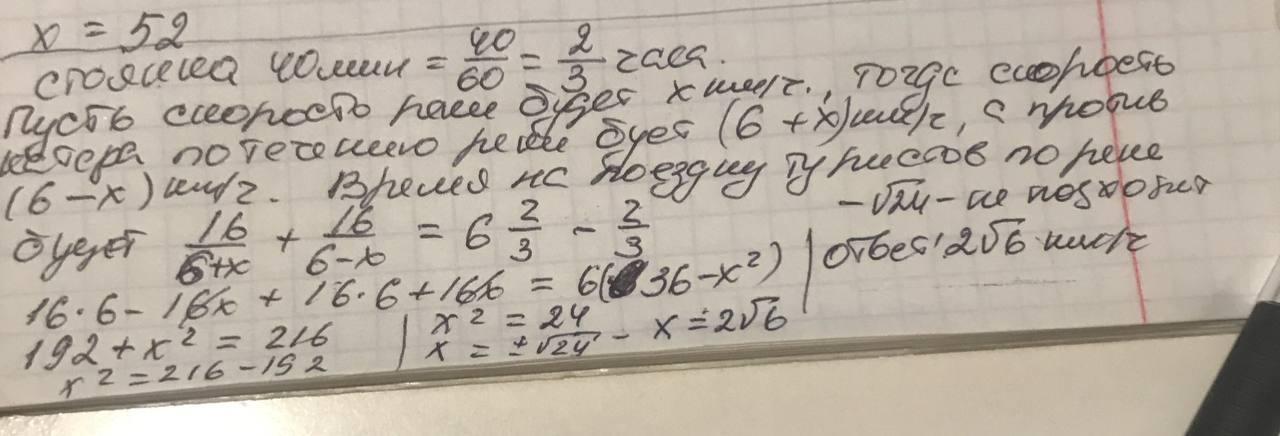 x = 52
стоянка 40мин = 40/60 = 2/3 часа.
Пусть скорость реки будет x км/ч., тогда скорость
катера по течению реки бует (6 + x) км/ч, а против
(6 - x) км/ч. Время на поездку туристов по реке
будет 16/(6+x) + 16/(6-x) = 6 2/3 - 2/3
-√24 - не подходит
16·6 - 16x + 16·6 + 16x = 6(36 - x²)
ответ: 2√6 км/ч
192 + x² = 216
x² = 216 - 192
x² = 24
x = ±√24 - x = 2√6